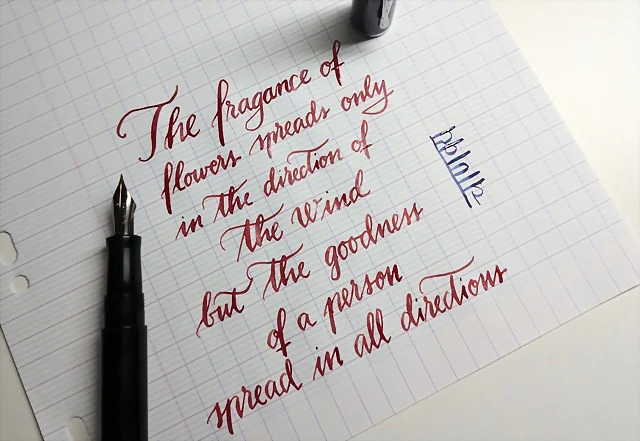 The fragance of
flowers spreads only
in the direction of
the wind
but the goodness
of a person
spread in all directions